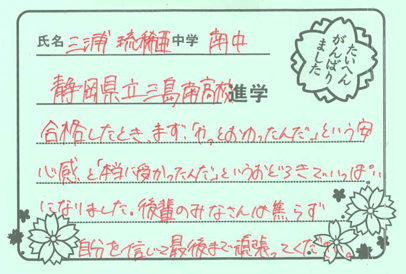 氏名 三浦 琉稀亜 中学 南中
たいへん
がんばり
ました
静岡県立三島南高校 進学
合格したとき、まず「やっとおわったんだ」という安
心感と「本当に受かったんだ」というおどろきでいっぱい
になりました。後輩のみなさんは焦らず
自分を信じて最後まで頑張ってください。